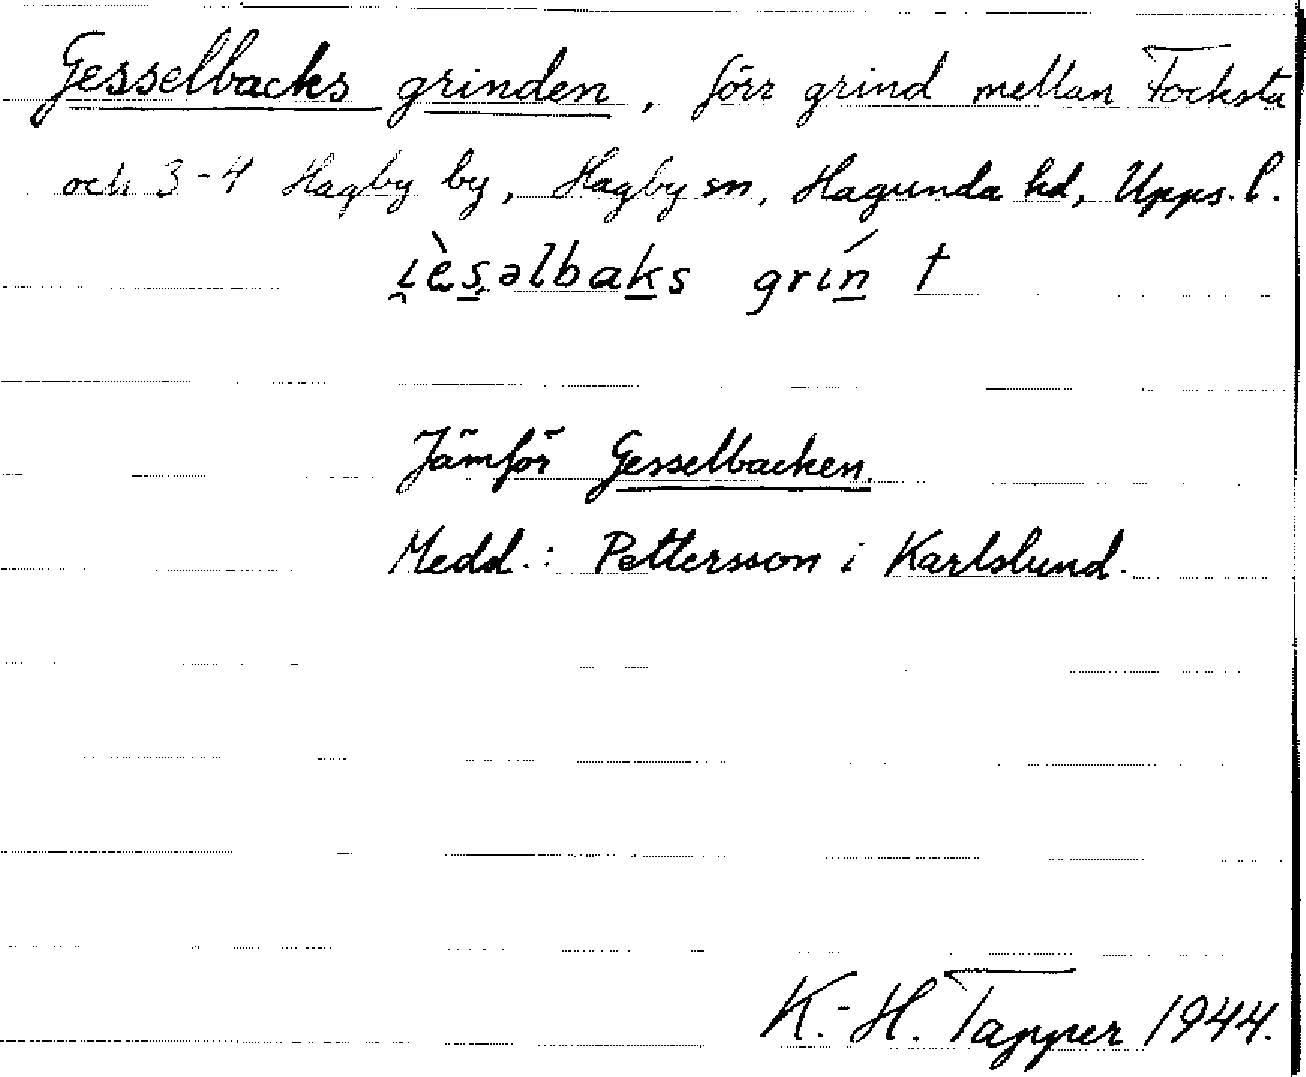 Gesselbacks grinden, förr grind mellan Focksta
och 3-4 Hagby by, Hagby sn, Hagunda hd, Upps. l.
i̯ès̱əlbaḵs griṉ́ †
Jämför Gesselbacken.
Medd.: Pettersson i Karlslund.
K.-H. Tapper 1944.